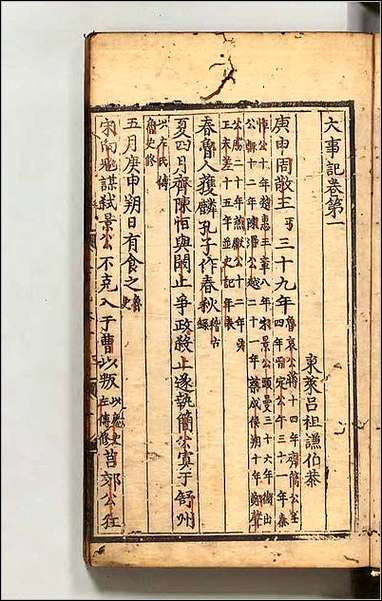 大事記卷第一
東萊呂祖謙伯恭
庚申周敬王丐三十九年魯哀公蔣十四年齊簡公壬四年晉定公午三十一年秦
悼公十年楚惠王章八年宋景公頭曼三十六年
公輒十二年陳湣公越二十一年蔡成侯朔十年鄭聲
公勝二十年燕獻公十二年吳
王夫差十五年並史記年表
春魯人獲麟孔子作春秋稽古錄
夏四月齊陳恒與闞止爭政殺止遂執簡公寘于舒州
以左氏傳魯史修
五月庚申朔日有食之魯史
宋向魋謀弒景公不克入于曹以叛以魯史左傳修莒郊公狂